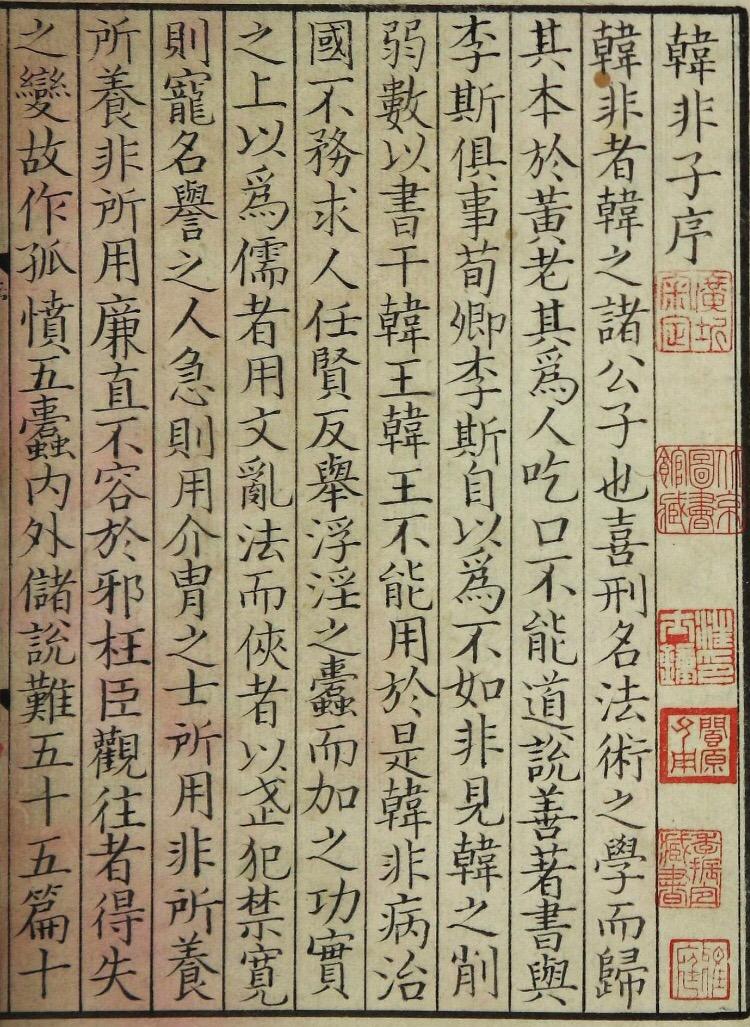 韓非子序
韓非者韓之諸公子也喜刑名法術之學而歸
其本於黃老其爲人吃口不能道說善著書與
李斯俱事荀卿李斯自以爲不如非見韓之削
弱數以書干韓王韓王不能用於是韓非病治
國不務求人任賢反舉浮淫之蠹而加之功實
之上以爲儒者用文亂法而俠者以武犯禁寬
則寵名譽之人急則用介胄之士所用非所養
所養非所用廉直不容於邪枉臣觀往者得失
之變故作孤憤五蠹内外儲說難五十五篇十
北京圖書館藏